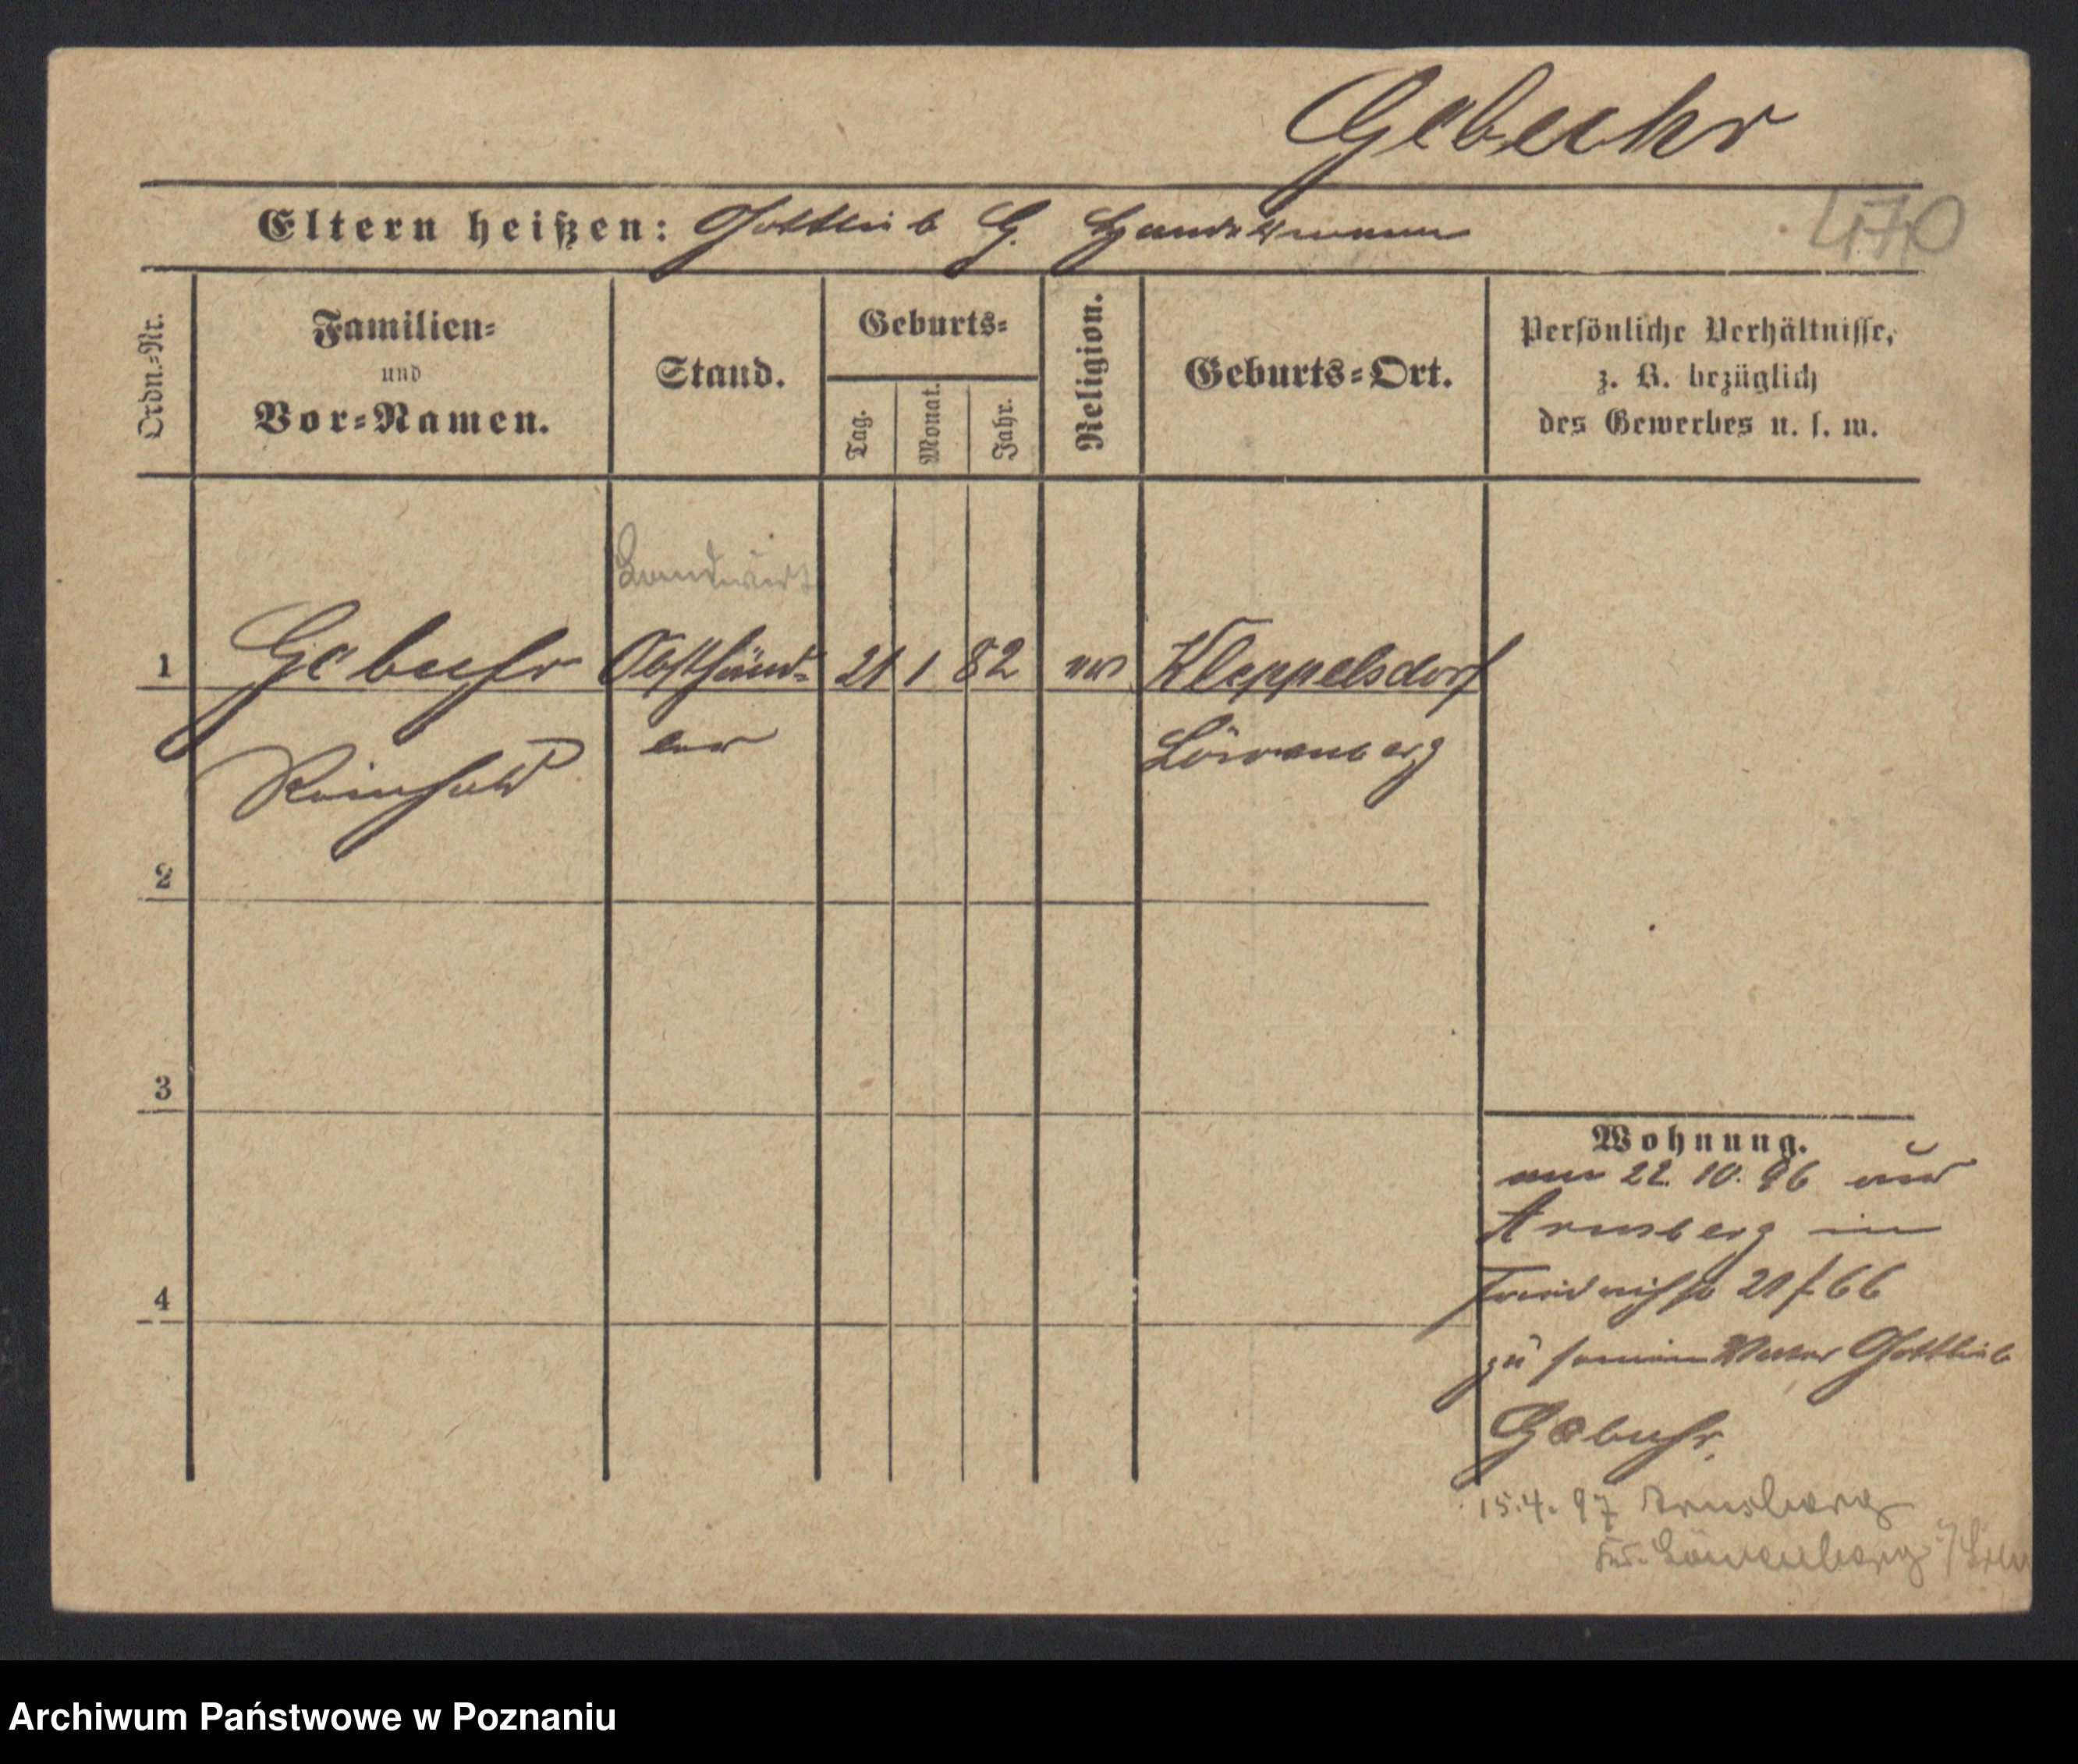 Gebuhr
Eltern heißen: Gottlieb G. Handelsmann
470
Ordn.=Nr.
Familien=
und
Vor=Namen.
Stand.
Geburts=
Tag.
Monat.
Jahr.
Religion.
Geburts=Ort.
Persönliche Verhältnisse,
z. B. bezüglich
des Gewerbes u. s. w.
Landwirt
1 Gebuhr Obsthänd= 21 1 82 Kleppelsdorf
Reinhold ler Löwenberg
2
3
4
Wohnung.
am 22. 10. 96 aus
Arnsberg in
21 66
zu seinem Vater Gottlieb
Gebuhr.
15.4.97 Arnsberg
Löwenberg
Archiwum Państwowe w Poznaniu